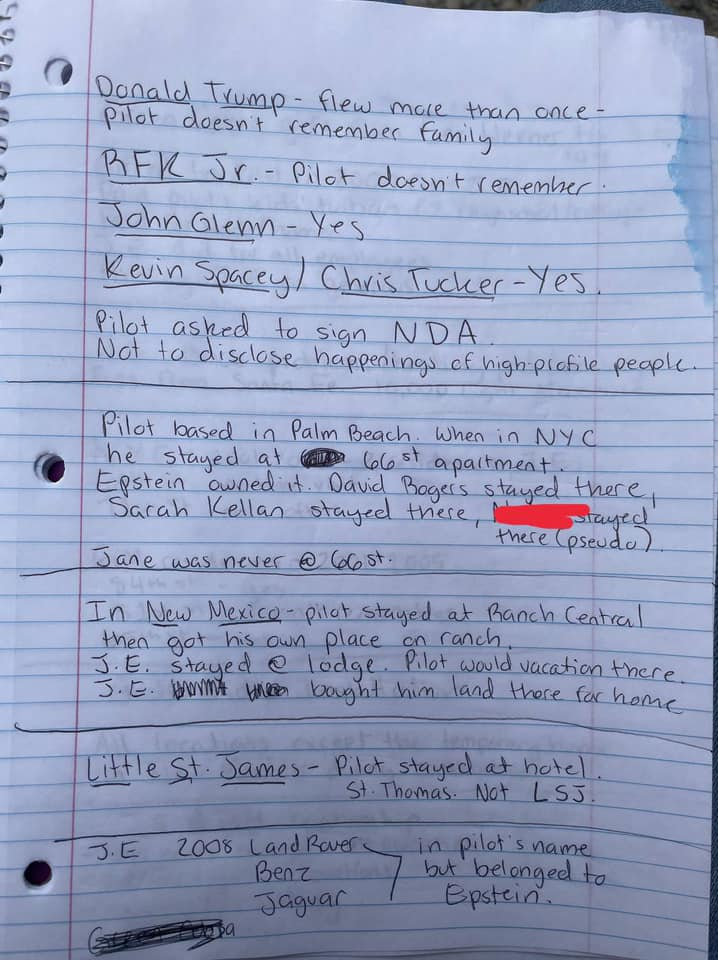 Donald Trump - flew more than once -
pilot doesn't remember family
RFK Jr. - Pilot doesn't remember.
John Glenn - Yes
Kevin Spacey / Chris Tucker - Yes.
Pilot asked to sign NDA.
Not to disclose happenings of high-profile people.
Pilot based in Palm Beach. When in NYC
he stayed at 66 st apartment.
Epstein owned it. David Rogers stayed there,
Sarah Kellan stayed there, stayed
there (pseudo).
Jane was never @ 66 st.
In New Mexico - pilot stayed at Ranch Central
then got his own place on ranch.
J.E. stayed @ lodge. Pilot would vacation there.
J.E. bought him land there for home
Little St. James - Pilot stayed at hotel.
St. Thomas. Not LSJ.
J.E 2008 Land Rover in pilot's name
Benz but belonged to
Jaguar Epstein.